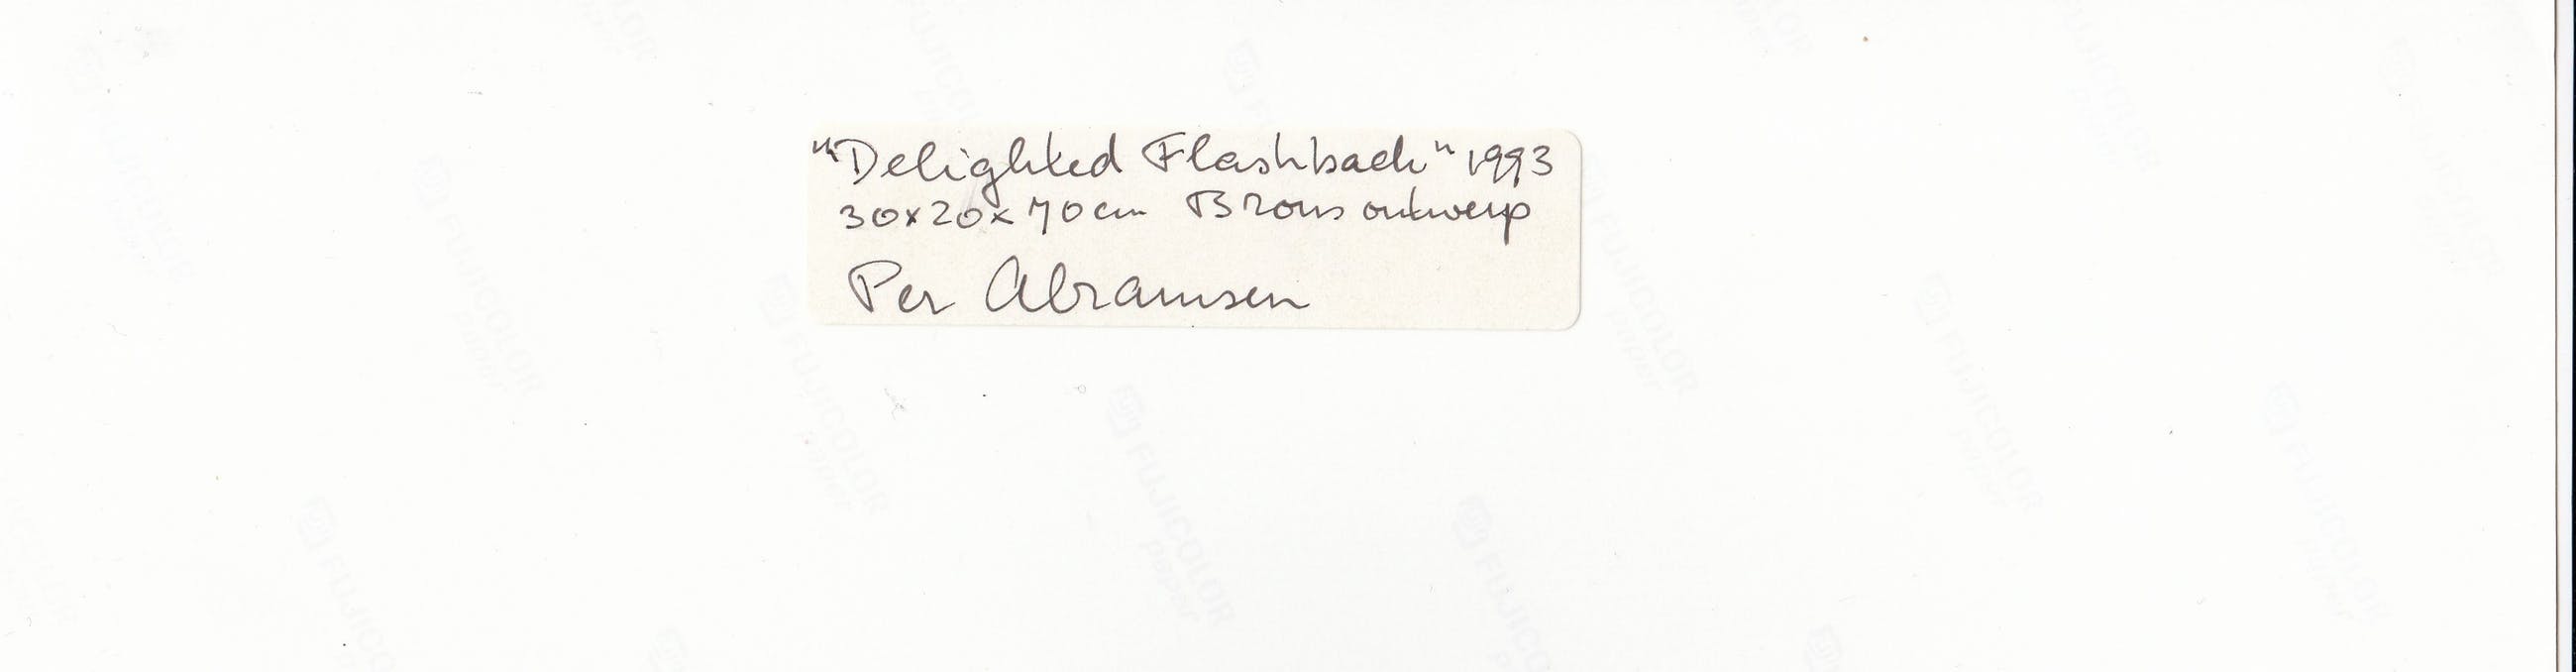 "Delighted Flashback" 1993
30x20x70cm Brons ontwerp
Per Abramsen
FUJICOLOR
paper